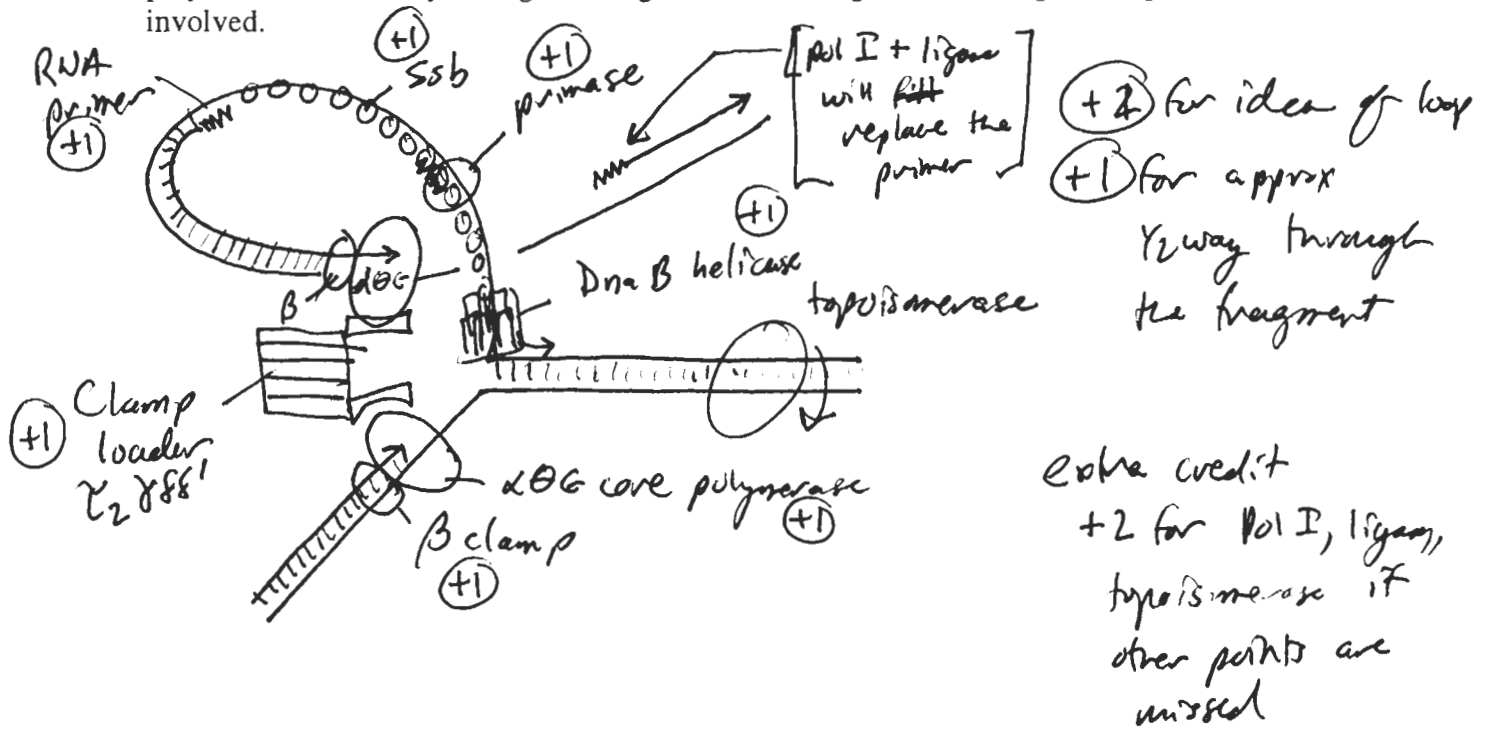 involved.
RNA
primer
+1
+1
Ssb
+1
primase
[pol I + ligase
will
replace the
primer]
+2 for idea of loop
+1 for approx
1/2 way through
the fragment
+1
DnaB helicase
topoisomerase
β
αθε
+1 Clamp
loader
τ2γδδ'
αθε core polymerase
+1
β clamp
+1
extra credit
+2 for Pol I, ligase,
topoisomerase if
other points are
missed